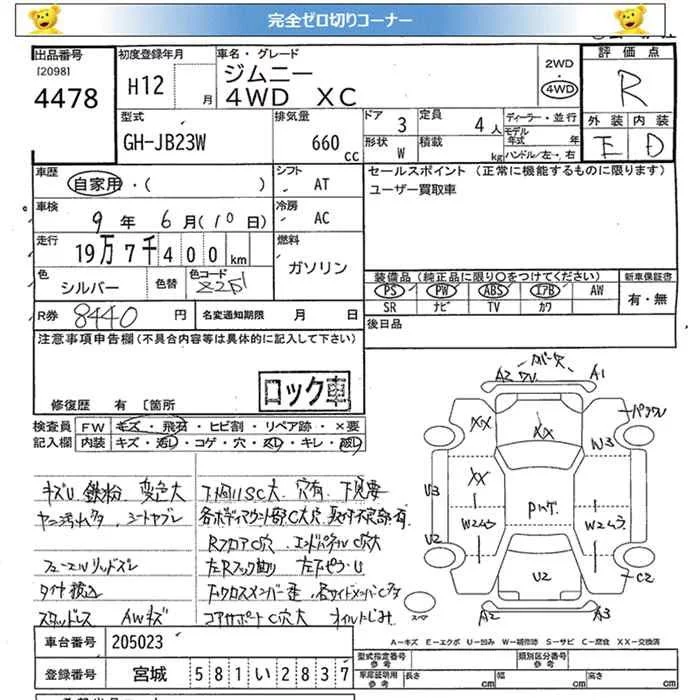 完全ゼロ切りコーナー
出品番号 初度登録年月 車名・グレード 評価点
[2098] ジムニー 2WD
4478 H12 月 4WD XC 4WD R
型式 排気量 ドア 定員 ディーラー・並行 外装 内装
GH-JB23W 660 cc 3 4人 モデル年式 年 E D
形状 W 積載 kg ハンドル/左・右
車歴 シフト セールスポイント (正常に機能するものに限ります)
自家用・( ) AT ユーザー買取車
車検 冷房
9年 6月(10日) AC
走行 燃料
19万7千400km ガソリン
色 色替 色コード 装備品(純正品に限り○をつけてください) 新車保証書
シルバー Z2S PS PW ABS エアB AW 有・無
SR ナビ TV カワ
R券 8440円 名変通知期限 月 日 後日品
注意事項申告欄(不具合内容等は具体的に記入して下さい)
ロック車
修復歴 有 〔箇所
検査員 FW キズ・飛石・ヒビ割・リペア跡・×要
記入欄 内装 キズ・汚レ・コゲ・穴・スレ・キレ・破レ
キズU 鉄粉 変色大 下回りSC大 穴有 下見要
シートヤブレ 各ボディマウント部C大穴
RフロアC穴 エンドパネルC穴大
フューエルリッドズレ
スタッドレス AWキズ コアサポートC穴大 オイルにじみ
A2 A1
XX XX W3
XX PWケ
U3 W2ムラ W2ムラ
U2 U2 C2
スペア A2 A3
車台番号 205023
登録番号 宮城 581い2837
A−キズ E−エクボ U−凹み W−補修跡 S−サビ C−腐食 XX−交換済
型式指定番号 参考 類別区分番号 参考
車庫証明用 参考 長さ cm 幅 cm 高さ cm